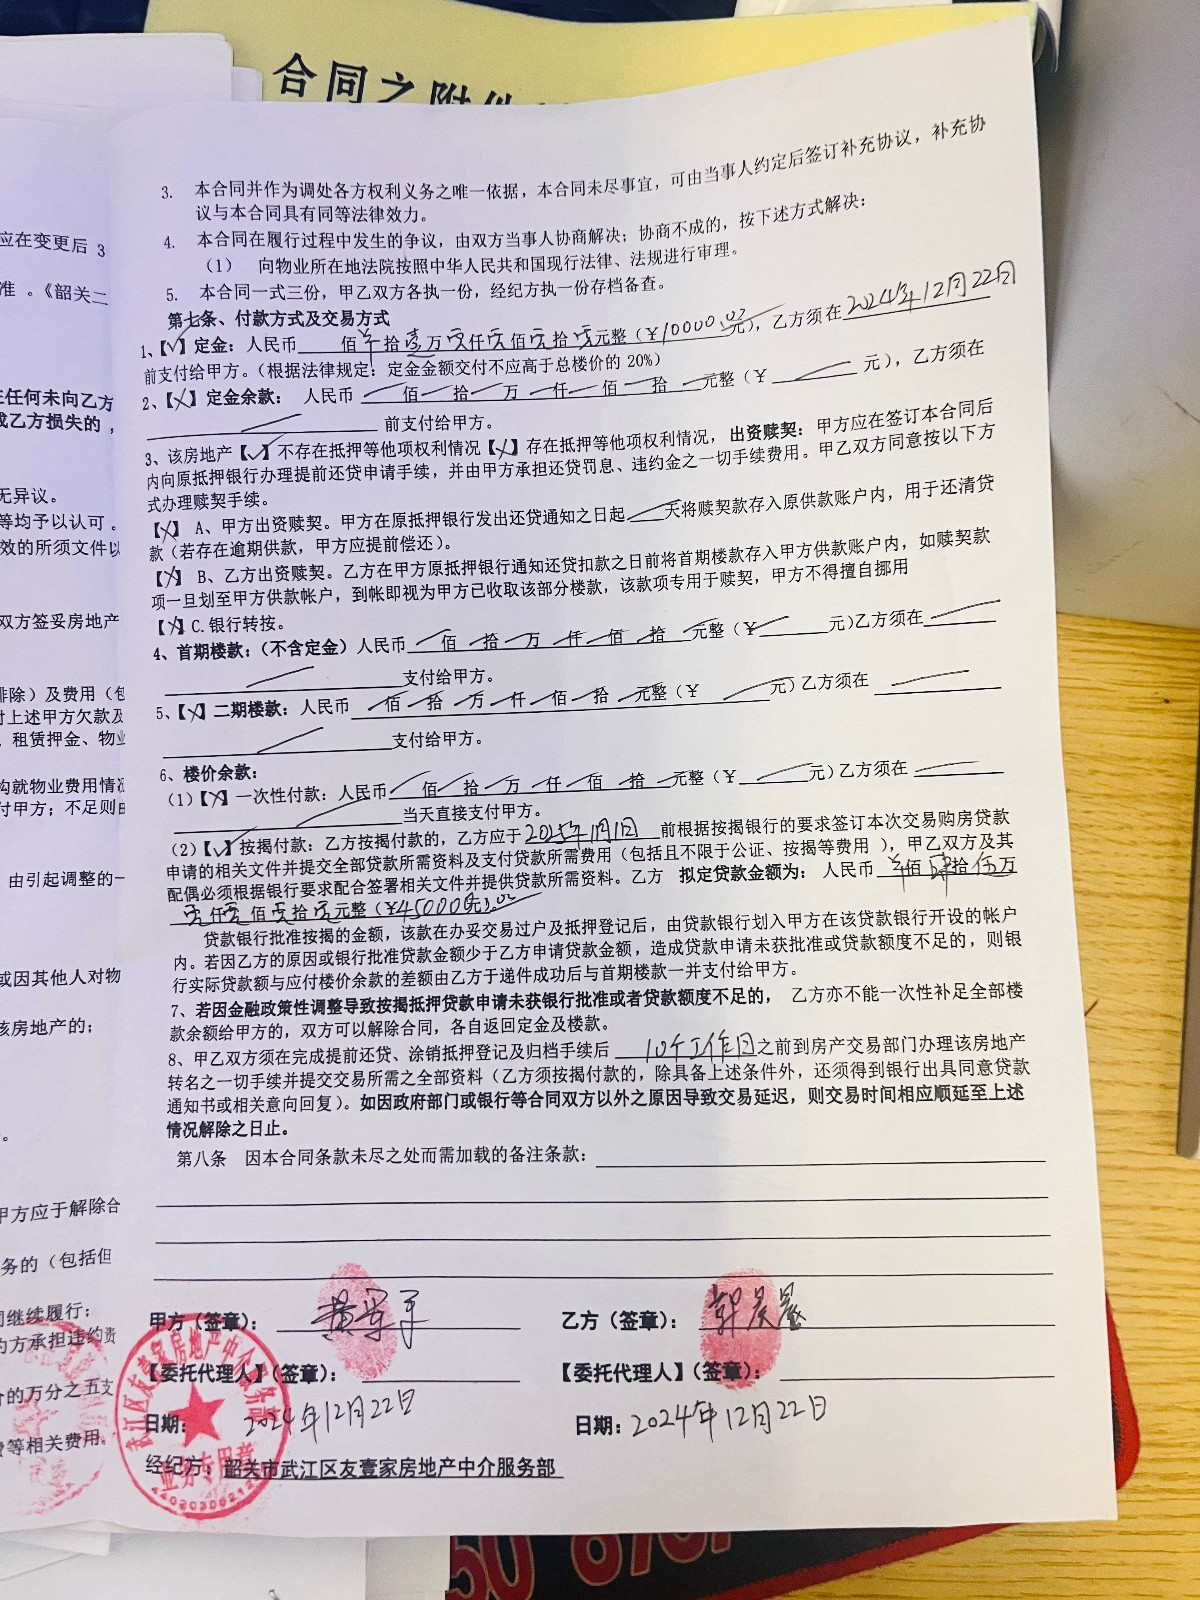 合同之附件
3. 本合同并作为调处各方权利义务之唯一依据，本合同未尽事宜，可由当事人约定后签订补充协议，补充协
议与本合同具有同等法律效力。
4. 本合同在履行过程中发生的争议，由双方当事人协商解决；协商不成的，按下述方式解决：
（1） 向物业所在地法院按照中华人民共和国现行法律、法规进行审理。
5. 本合同一式三份，甲乙双方各执一份，经纪方执一份存档备查。
第七条、付款方式及交易方式
1、【√】定金：人民币 佰 拾壹万零仟零佰零拾零元整（¥10000.00元），乙方须在2024年12月22日
前支付给甲方。（根据法律规定：定金金额交付不应高于总楼价的 20%）
2、【X】定金余款： 人民币 佰 拾 万 仟 佰 拾 元整（¥ 元），乙方须在
前支付给甲方。
3、该房地产【√】不存在抵押等他项权利情况【X】存在抵押等他项权利情况，出资赎契：甲方应在签订本合同后
内向原抵押银行办理提前还贷申请手续，并由甲方承担还贷罚息、违约金之一切手续费用。甲乙双方同意按以下方
式办理赎契手续。
【X】 A、甲方出资赎契。甲方在原抵押银行发出还贷通知之日起 天将赎契款存入原供款账户内，用于还清贷
款（若存在逾期供款，甲方应提前偿还）。
【X】 B、乙方出资赎契。乙方在甲方原抵押银行通知还贷扣款之日前将首期楼款存入甲方供款账户内，如赎契款
项一旦划至甲方供款帐户，到帐即视为甲方已收取该部分楼款，该款项专用于赎契，甲方不得擅自挪用
【X】C.银行转按。
4、首期楼款：（不含定金）人民币 佰 拾 万 仟 佰 拾 元整（¥ 元)乙方须在
支付给甲方。
5、【X】二期楼款：人民币 佰 拾 万 仟 佰 拾 元整（¥ 元）乙方须在
支付给甲方。
6、楼价余款：
（1）【X】一次性付款：人民币 佰 拾 万 仟 佰 拾 元整（¥ 元）乙方须在
当天直接支付甲方。
（2）【√】按揭付款：乙方按揭付款的，乙方应于2025年1月1日 前根据按揭银行的要求签订本次交易购房贷款
申请的相关文件并提交全部贷款所需资料及支付贷款所需费用（包括且不限于公证、按揭等费用 ），甲乙双方及其
配偶必须根据银行要求配合签署相关文件并提供贷款所需资料。乙方 拟定贷款金额为： 人民币 佰肆拾伍万
零仟零佰零拾零元整（¥450000元).00
贷款银行批准按揭的金额，该款在办妥交易过户及抵押登记后，由贷款银行划入甲方在该贷款银行开设的帐户
内。若因乙方的原因或银行批准贷款金额少于乙方申请贷款金额，造成贷款申请未获批准或贷款额度不足的，则银
行实际贷款额与应付楼价余款的差额由乙方于递件成功后与首期楼款一并支付给甲方。
7、若因金融政策性调整导致按揭抵押贷款申请未获银行批准或者贷款额度不足的， 乙方亦不能一次性补足全部楼
款余额给甲方的，双方可以解除合同，各自返回定金及楼款。
8、甲乙双方须在完成提前还贷、涂销抵押登记及归档手续后 10个工作日之前到房产交易部门办理该房地产
转名之一切手续并提交交易所需之全部资料（乙方须按揭付款的，除具备上述条件外，还须得到银行出具同意贷款
通知书或相关意向回复）。如因政府部门或银行等合同双方以外之原因导致交易延迟，则交易时间相应顺延至上述
情况解除之日止。
第八条 因本合同条款未尽之处而需加载的备注条款：
甲方（签章）： 乙方（签章）：
【委托代理人】（签章）： 【委托代理人】（签章）：
日期：2024年12月22日 日期：2024年12月22日
经纪方：韶关市武江区友壹家房地产中介服务部
武江区友壹家房地产中介服务部
业务专用章
应在变更后 3
准 。《韶关二
任何未向乙方
成乙方损失的，
无异议。
等均予以认可。
效的所须文件以
双方签妥房地产
排除）及费用（包
付上述甲方欠款及
、租赁押金、物业
构就物业费用情况
付甲方；不足则由
由引起调整的一
或因其他人对物
该房地产的；
甲方应于解除合
务的（包括但
同继续履行；
约方承担违约责
价的万分之五支
费等相关费用。